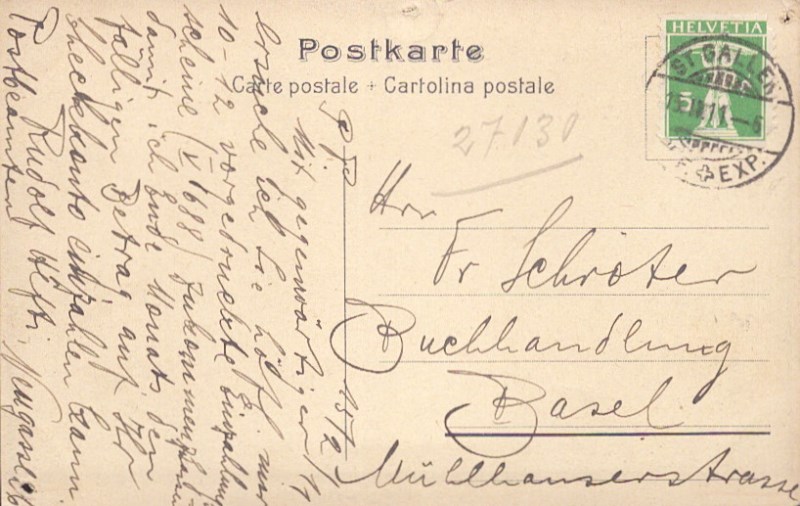 Postkarte
Carte postale + Cartolina postale
HELVETIA
5
ST. GALLEN
EXP.
27130
Hrn
Fr Schröter
Buchhandlung
Basel
Mühlhauserstrasse
15/2 11
Mit gegenwärtiger
ersuche ich Sie höfl. mir
10-12 vorgedruckte Einzahlung
scheine (V 1688) zukommen
damit ich Ende Monats den
fälligen Betrag auf Ihr
Checkkonto einzahlen kann.
Rudolf Hefti, Neugasse
Postbeamten